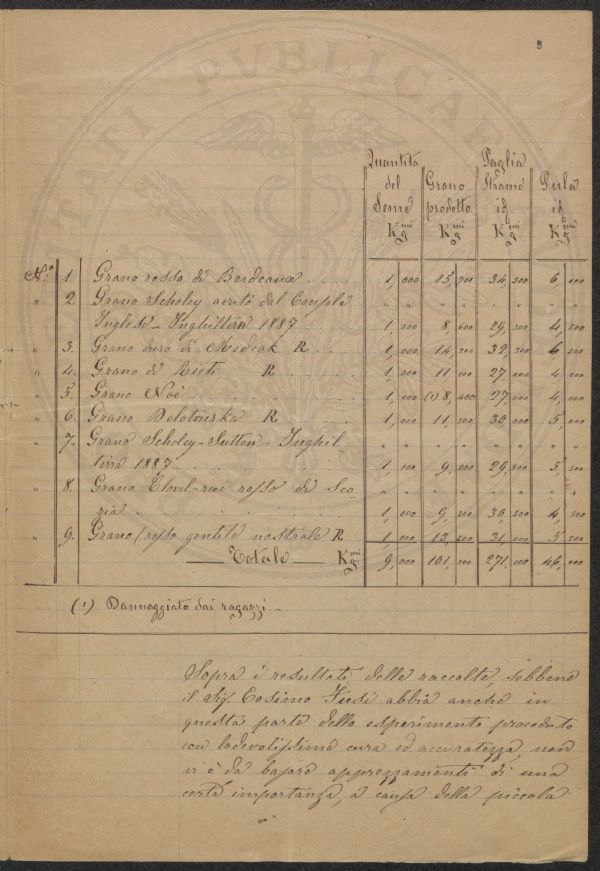 TATI PUBLICAE
Quantità del Seme K.mi g
Grano prodotto K.mi g
Paglia Strame id K.mi g
Pula id K.mi g
N.o 1. Grano rosso di Bordeaux . . . . 1,000 15,200 34,500 6,000
" 2. Grano Scholey avuto dal
Inglese - Inghilterra 1887 . . 1,000 8,600 29,500 4,500
" 3. Grano duro di Medeak R . . 1,000 14,200 32,500 6,500
" 4. Grano di Rieti R . . . 1,000 11,100 27,000 4,000
" 5. Grano Noè . . . . 1,000 (1) 8,400 27,000 4,000
" 6. Grano Belotourka R . . . 1,000 11,500 30,000 5,000
" 7. Grano Scholey-Sutton - Inghil " " " " " " " "
terra 1887 . . . . 1,000 9,200 29,500 5,500
" 8. Grano rosso di Sco " " " " " " " "
zia . . . . 1,000 9,200 30,500 4,500
" 9. Grano rosso gentile nostrale R 1,000 13, 31,000 5,500
Totale K.mi g 9,000 101, 271, 46,000
(1) Dannaggiato dai ragazzi -
Sopra i resultati delle raccolte, sebbene
il Sig. Cosimo abbia anche in
questa parte dello esperimento proceduto
con lodevolissima cura ed accuratezza, non
vi è da basare apprezzamenti di una
certa importanza, a causa della piccola